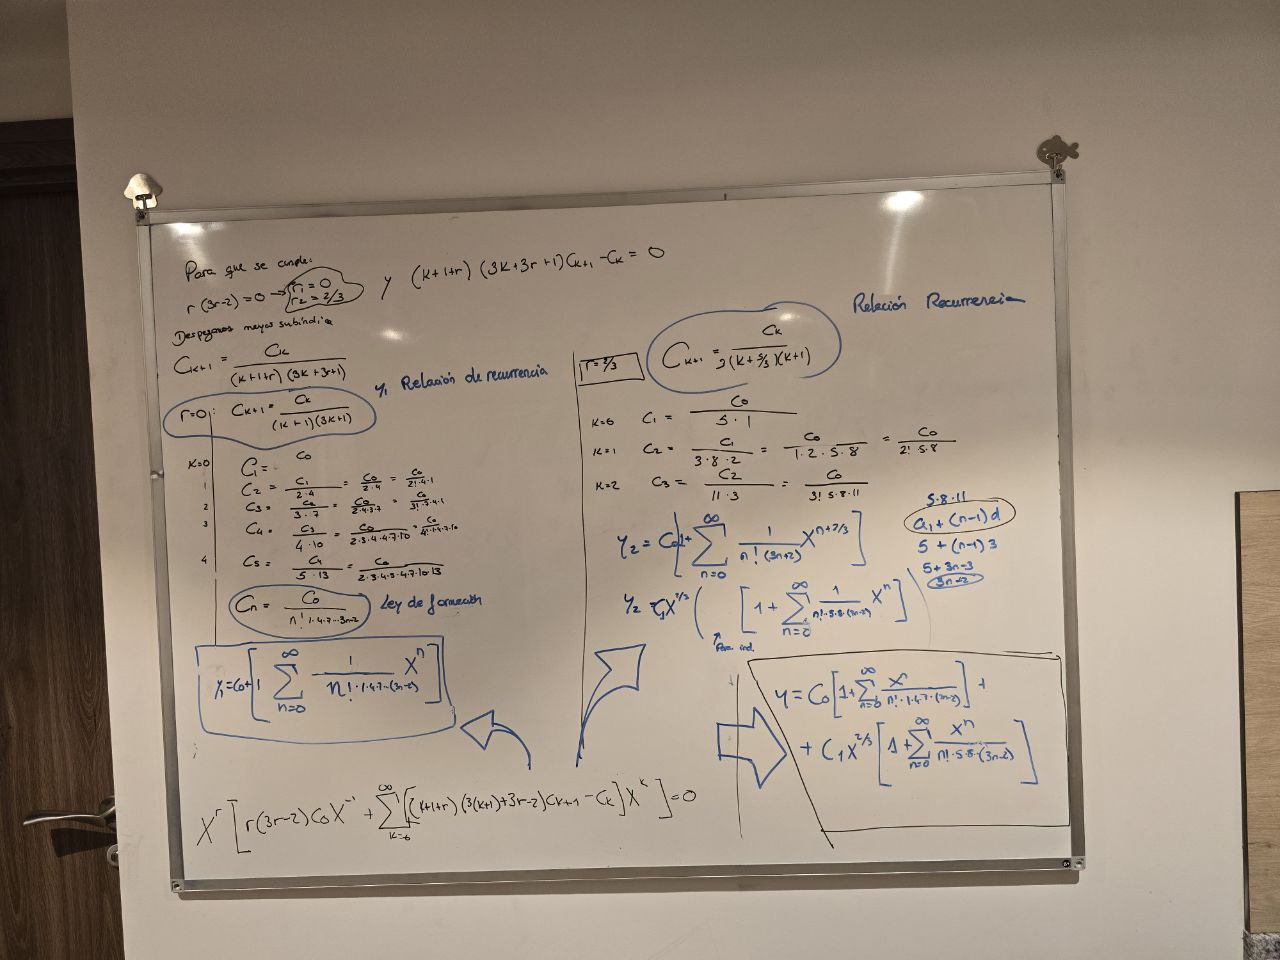 Para que se cumple:
r (3r-2) = 0 → r₁ = 0
r₂ = 2/3
y (k+1+r) (3k+3r+1) Ck+1 - Ck = 0
Despejamos mayor subíndice
Ck+1 = Ck / (k+1+r) (3k+3r+1)
y₁ Relación de recurrencia
r=0: Ck+1 = Ck / (k+1)(3k+1)
K=0 C₁ = C₀
1 C₂ = C₁ / 2·4 = C₀ / 2·4 = C₀ / 2!·4·1
2 C₃ = C₂ / 3·7 = C₀ / 2·4·3·7 = C₀ / 3!·7·4·1
3 C₄ = C₃ / 4·10 = C₀ / 2·3·4·4·7·10 = C₀ / 4!·1·4·7·10
4 C₅ = C₄ / 5·13 = C₀ / 2·3·4·5·4·7·10·13
Cn = C₀ / n! 1·4·7···3n-2
Ley de formación
y₁ = C₀+[1 ∑ n=0 ∞ 1 / n!·1·4·7···(3n-2) Xⁿ]
r=2/3
Ck+1 = Ck / 3(k+5/3)(k+1)
Relación Recurrencia
K=0 C₁ = C₀ / 5·1
K=1 C₂ = C₁ / 3·8·2 = C₀ / 1·2·5·8 = C₀ / 2! 5·8
K=2 C₃ = C₂ / 11·3 = C₀ / 3! 5·8·11
y₂ = C₀[1+ ∑ n=0 ∞ 1 / n!·(3n+2) X^(n+2/3)]
y₂ = C₁X^(2/3) ( [1 + ∑ n=0 ∞ 1 / n!·5·8·(3n-2) Xⁿ] )
Para ind.
5·8·11
a₁ + (n-1) d
5 + (n-1) 3
5 + 3n-3
3n+2
y = C₀ [1+ ∑ n=0 ∞ Xⁿ / n!·1·4·7···(3n-2)] +
+ C₁X^(2/3) [1 + ∑ n=0 ∞ Xⁿ / n!·5·8··(3n-2)]
X^r [r(3r-2)C₀X⁻¹ + ∑ k=0 ∞ [(k+1+r) (3(k+1)+3r-2) Ck+1 - Ck] X^k] = 0